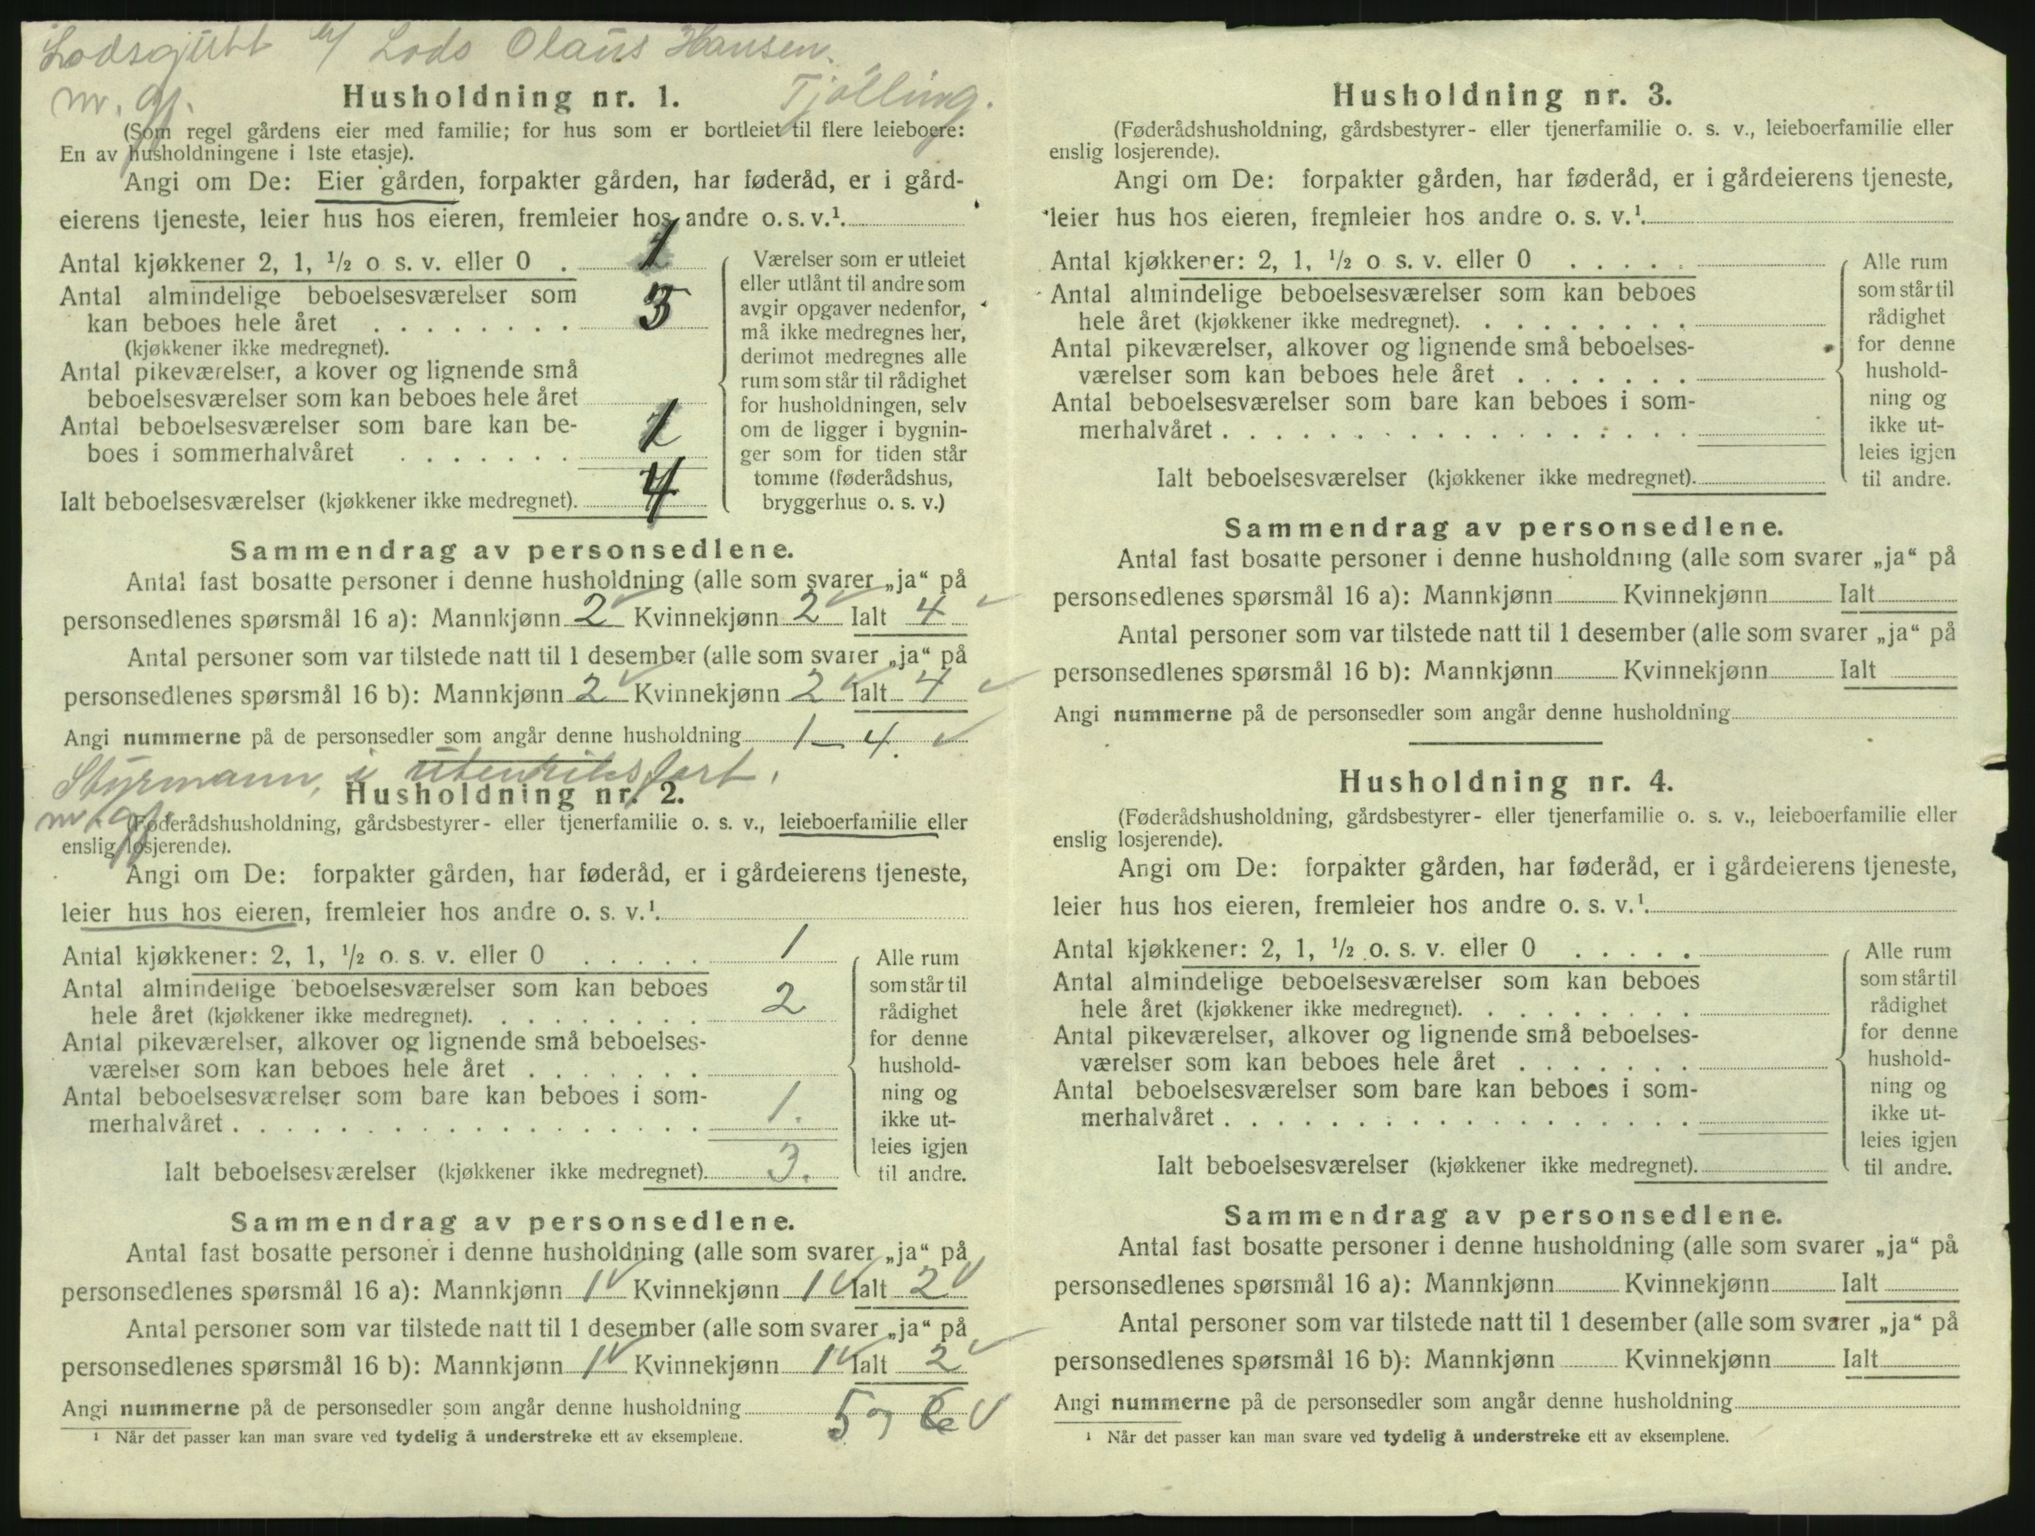 Lodsgutt b/ Lods Olaus Hansen.
m. gf. Tjølling.
Husholdning nr. 1.
(Som regel gårdens eier med familie; for hus som er bortleiet til flere leieboere:
En av husholdningene i 1ste etasje).
Angi om De: Eier gården, forpakter gården, har føderåd, er i gård-
eierens tjeneste, leier hus hos eieren, fremleier hos andre o. s. v.¹
Antal kjøkkener 2, 1, ½ o s. v. eller 0 . 1
Antal almindelige beboelsesværelser som
kan beboes hele året . . . . . . . . 3
(kjøkkener ikke medregnet).
Antal pikeværelser, a kover og lignende små
beboelsesværelser som kan beboes hele året
Antal beboelsesværelser som bare kan be-
boes i sommerhalvåret . . . . . . . 1
Ialt beboelsesværelser (kjøkkener ikke medregnet). 4
Værelser som er utleiet
eller utlånt til andre som
avgir opgaver nedenfor,
må ikke medregnes her,
derimot medregnes alle
rum som står til rådighet
for husholdningen, selv
om de ligger i bygnin-
ger som for tiden står
tomme (føderådshus,
bryggerhus o. s. v.)
Sammendrag av personsedlene.
Antal fast bosatte personer i denne husholdning (alle som svarer „ja“ på
personsedlenes spørsmål 16 a): Mannkjønn 2 Kvinnekjønn 2 Ialt 4
Antal personer som var tilstede natt til 1 desember (alle som svarer „ja“ på
personsedlenes spørsmål 16 b): Mannkjønn 2 Kvinnekjønn 2 Ialt 4
Angi nummerne på de personsedler som angår denne husholdning 1 - 4.
Styrmann, i utenriksfart.
Husholdning nr. 2.
m. gf.
(Føderådshusholdning, gårdsbestyrer- eller tjenerfamilie o. s. v., leieboerfamilie eller
enslig losjerende).
Angi om De: forpakter gården, har føderåd, er i gårdeierens tjeneste,
leier hus hos eieren, fremleier hos andre o. s. v.¹
Antal kjøkkener: 2, 1, ½ o. s. v. eller 0 . . . . . 1
Antal almindelige beboelsesværelser som kan beboes
hele året (kjøkkener ikke medregnet). . . . . . . . . 2
Antal pikeværelser, alkover og lignende små beboelses-
værelser som kan beboes hele året . . . . . . .
Antal beboelsesværelser som bare kan beboes i som-
merhalvåret . . . . . . . . . . . . . . . . . . 1.
Ialt beboelsesværelser (kjøkkener ikke medregnet). 3.
Alle rum
som står til
rådighet
for denne
hushold-
ning og
ikke ut-
leies igjen
til andre.
Sammendrag av personsedlene.
Antal fast bosatte personer i denne husholdning (alle som svarer „ja“ på
personsedlenes spørsmål 16 a): Mannkjønn 1 Kvinnekjønn 1 Ialt 2
Antal personer som var tilstede natt til 1 desember (alle som svarer „ja“ på
personsedlenes spørsmål 16 b): Mannkjønn 1 Kvinnekjønn 1 Ialt 2
Angi nummerne på de personsedler som angår denne husholdning 5 og 6
¹ Når det passer kan man svare ved tydelig å understreke ett av eksemplene.
Husholdning nr. 3.
(Føderådshusholdning, gårdsbestyrer- eller tjenerfamilie o. s. v., leieboerfamilie eller
enslig losjerende).
Angi om De: forpakter gården, har føderåd, er i gårdeierens tjeneste,
leier hus hos eieren, fremleier hos andre o. s. v.¹
Antal kjøkkener: 2, 1, ½ o s. v. eller 0 . . . . .
Antal almindelige beboelsesværelser som kan beboes
hele året (kjøkkener ikke medregnet). . . . . . . . .
Antal pikeværelser, alkover og lignende små beboelses-
værelser som kan beboes hele året . . . . . . .
Antal beboelsesværelser som bare kan beboes i som-
merhalvåret . . . . . . . . . . . . . . . . . .
Ialt beboelsesværelser (kjøkkener ikke medregnet).
Alle rum
som står til
rådighet
for denne
hushold-
ning og
ikke ut-
leies igjen
til andre.
Sammendrag av personsedlene.
Antal fast bosatte personer i denne husholdning (alle som svarer „ja“ på
personsedlenes spørsmål 16 a): Mannkjønn Kvinnekjønn Ialt
Antal personer som var tilstede natt til 1 desember (alle som svarer „ja“ på
personsedlenes spørsmål 16 b): Mannkjønn Kvinnekjønn Ialt
Angi nummerne på de personsedler som angår denne husholdning
Husholdning nr. 4.
(Føderådshusholdning, gårdsbestyrer- eller tjenerfamilie o. s. v., leieboerfamilie eller
enslig losjerende).
Angi om De: forpakter gården, har føderåd, er i gårdeierens tjeneste,
leier hus hos eieren, fremleier hos andre o. s. v.¹
Antal kjøkkener: 2, 1, ½ o. s. v. eller 0 . . . . .
Antal almindelige beboelsesværelser som kan beboes
hele året (kjøkkener ikke medregnet). . . . . . . . .
Antal pikeværelser, alkover og lignende små beboelses-
værelser som kan beboes hele året . . . . . . .
Antal beboelsesværelser som bare kan beboes i som-
merhalvåret . . . . . . . . . . . . . . . . . .
Ialt beboelsesværelser (kjøkkener ikke medregnet).
Alle rum
som står til
rådighet
for denne
hushold-
ning og
ikke ut-
leies igjen
til andre.
Sammendrag av personsedlene.
Antal fast bosatte personer i denne husholdning (alle som svarer „ja“ på
personsedlenes spørsmål 16 a): Mannkjønn Kvinnekjønn Ialt
Antal personer som var tilstede natt til 1 desember (alle som svarer „ja“ på
personsedlenes spørsmål 16 b): Mannkjønn Kvinnekjønn Ialt
Angi nummerne på de personsedler som angår denne husholdning
¹ Når det passer kan man svare ved tydelig å understreke ett av eksemplene.